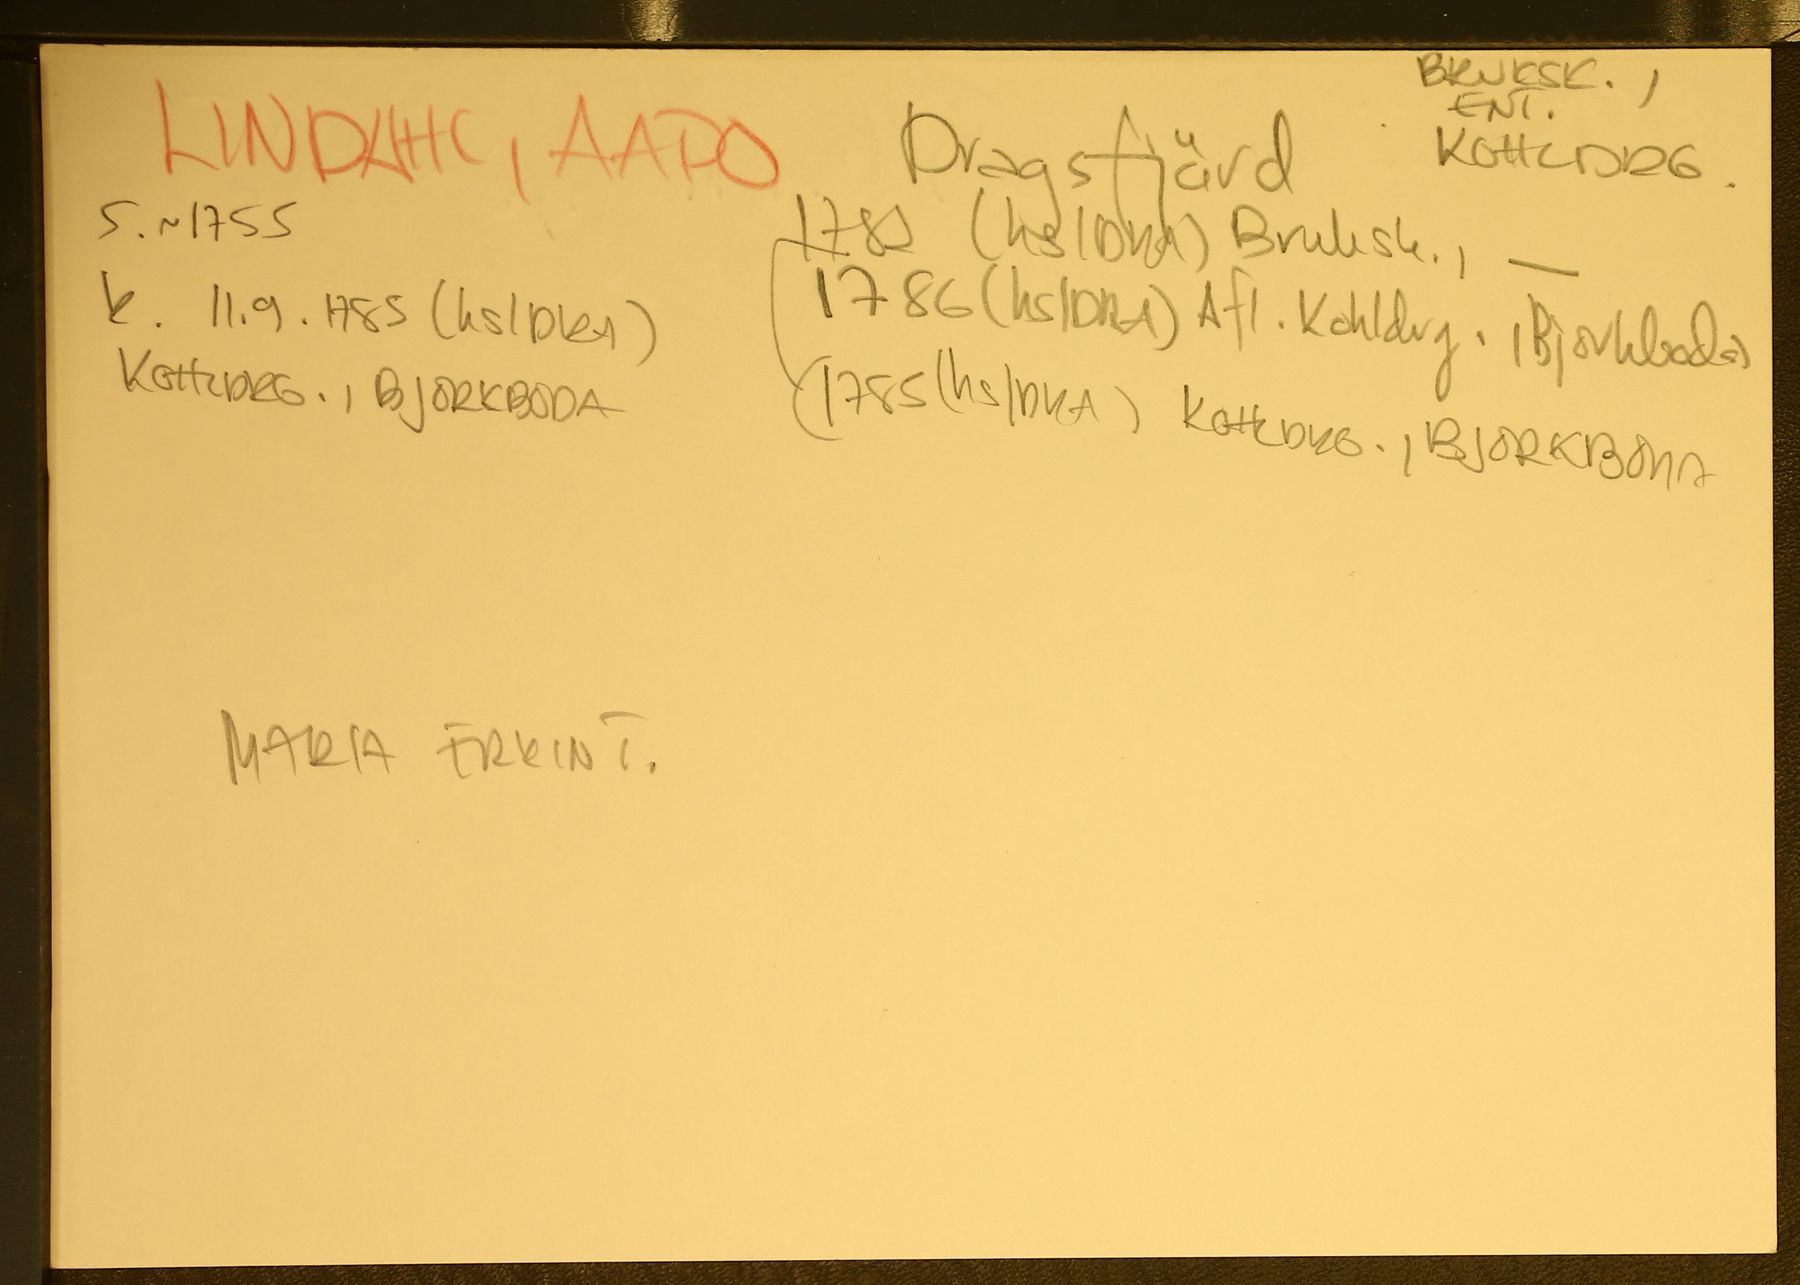 LINDAHL, AAPO
Dragsfjärd
BRUKSK.,
ENT.
KOHLDRG.
S. ~1755
k. 11.9.1785 (hs/DKA)
KOHLDRG., BJORKBODA
1782 (hs/DKA) Bruksk., —
1786 (hs/DKA) Afl. Kohldrg., Bjorkboda
(1785 (hs/DKA) KOHLDRG., BJORKBODA
MARIA ERKINT.